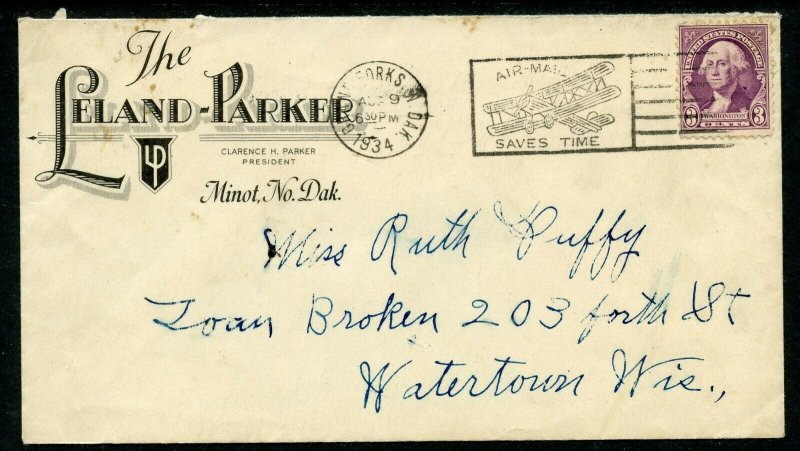 The
LELAND-PARKER
LP
CLARENCE H. PARKER
PRESIDENT
Minot, No. Dak.
FORKS N DAK
AUG 9
6 30 PM
1934
AIR-MAIL
SAVES TIME
UNITED STATES POSTAGE
WASHINGTON
3 3
Miss Ruth Puffy
Loan Broken 203 forth St
Watertown Wis.,